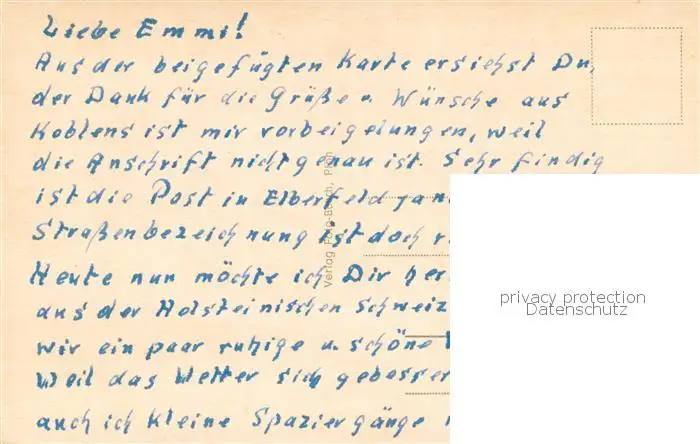 Liebe Emmi!
Aus der beigefügten Karte ersiehst Du,
der Dank für die Grüße u. Wünsche aus
Koblens ist mir vorbeigelungen, weil
die Anschrift nicht genau ist. Sehr findig
ist die Post in Elberfeld
Straßenbezeichnung ist doch
Heute nun möchte ich Dir
aus der Holsteinischen Schweiz
wir ein paar ruhige u. schöne
Weil das Wetter sich
auch ich kleine Spaziergänge
Verlag Foto-
privacy protection
Datenschutz